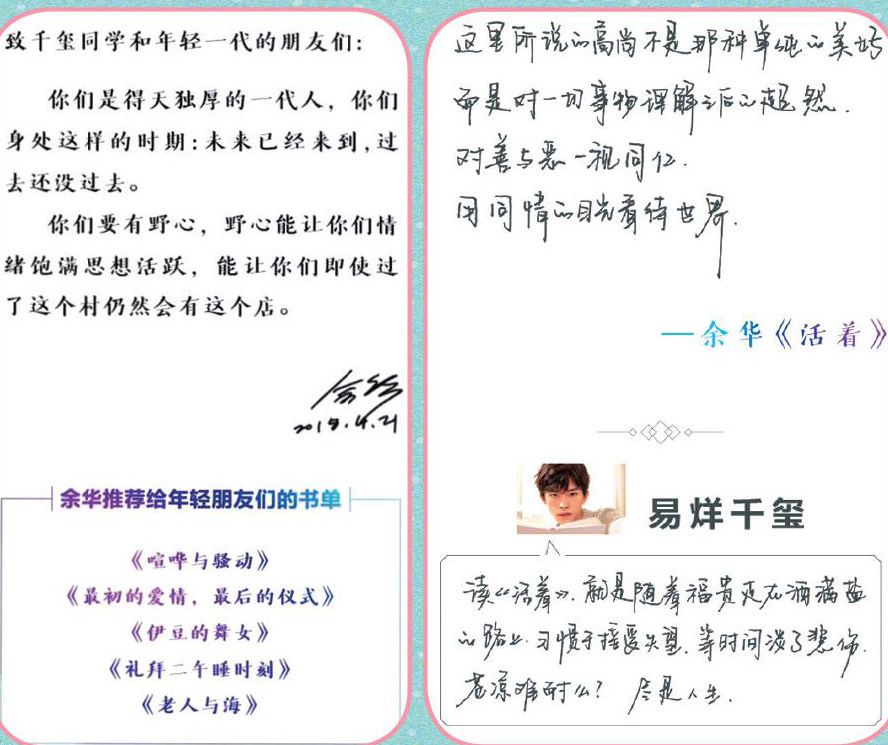 致千玺同学和年轻一代的朋友们：
你们是得天独厚的一代人，你们
身处这样的时期：未来已经来到，过
去还没过去。
你们要有野心，野心能让你们情
绪饱满思想活跃，能让你们即使过
了这个村仍然会有这个店。
余华
2019.4.21
余华推荐给年轻朋友们的书单
《喧哗与骚动》
《最初的爱情，最后的仪式》
《伊豆的舞女》
《礼拜二午睡时刻》
《老人与海》
这里所说的高尚不是那种单纯的美好
而是对一切事物理解之后的超然.
对善与恶一视同仁.
用同情的目光看待世界.
—余华《活着》
易烊千玺
读《活着》.就是随着福贵走在洒满盐
的路上.习惯于摇晃失望.等时间淡了悲伤.
苍凉难耐么？尽是人生.